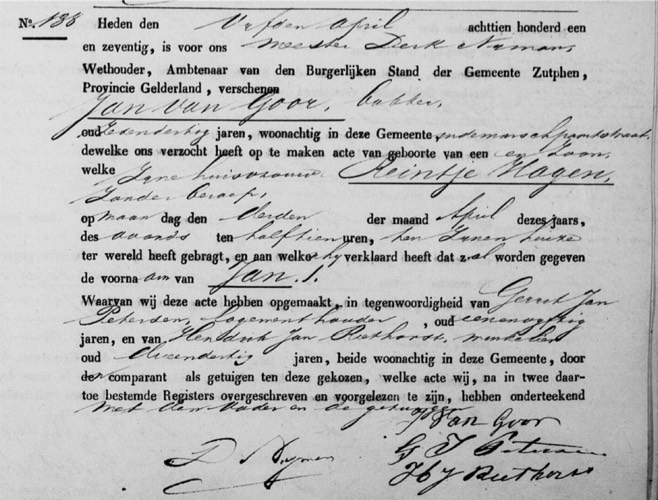 No. 138 Heden den Vijfden April achttien honderd een
en zeventig, is voor ons meester Derk
Wethouder, Ambtenaar van den Burgerlijken Stand der Gemeente Zutphen,
Provincie Gelderland, verschenen
Jan van Goor, bakker,
oud zevendertig jaren, woonachtig in deze Gemeente,
dewelke ons verzocht heeft op te maken acte van geboorte van een en Zoon,
welke Zyne huisvrouw Reintje Hagen,
Zonder beroep,
op maan dag den derden der maand April dezes jaars,
des avonds ten half tien uren, ten Zynen huize
ter wereld heeft gebragt, en aan welke hy verklaard heeft dat zal worden gegeven
de voorna am van Jan.
Waarvan wij deze acte hebben opgemaakt, in tegenwoordigheid van Gerrit Jan
Petersen, logementhouder, oud eenenvyftig
jaren, en van Hendrik Jan Riethorst,
oud jaren, beide woonachtig in deze Gemeente, door
den comparant als getuigen ten deze gekozen, welke acte wij, na in twee daar-
toe bestemde Registers overgeschreven en voorgelezen te zijn, hebben onderteekend
met den vader en de getuigen
J van Goor
G J Petersen
H J Riethorst